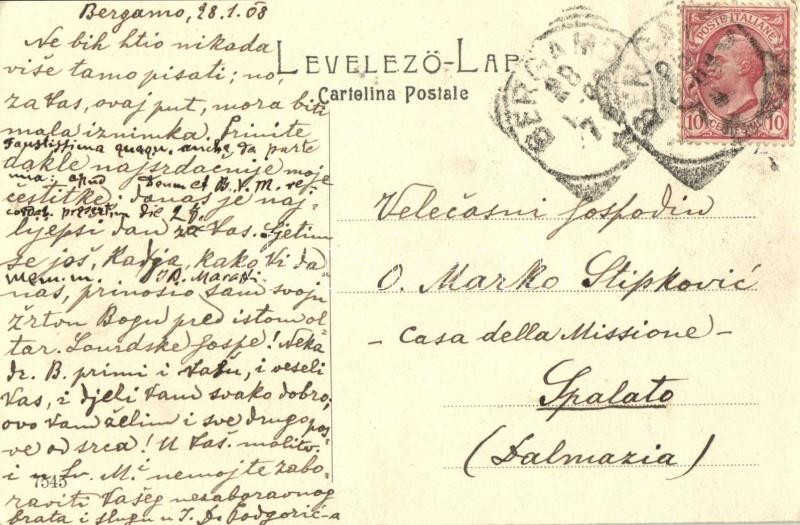 Bergamo, 28.1.08
Ne bih htio nikada
više tamo pisati; no,
za Vas, ovaj put, mora biti
mala iznimka. Primite
Faustissima quaqu. anche da parte
dakle najsrdačnije moje
mia: apud Deum et B. V. M. re-
čestitke, danas je naj-
cordab. presertim die 2 f.
ljepši dan za Vas. Sjetim
se još, kadja, kako Vi da-
mem.m. Maratti
nas, prinosio sam svoju
žrtvu Bogu pred istom ol-
tar. Lourdske Gospe! Neka
dr. B. primi i Vašu, i veseli
Vas, i djeli Vam svako dobro,
ovo Vam želim i sve drugo pos
ve od srca! U Vaš. molitv.
i u Sv. M. nemojte zabo-
raviti Vašeg nezaboravnog
brata i slugu u I. D. Podgorić-a
7545
LEVELEZŐ-LAP
Cartolina Postale
BERGAMO
28
BERGAMO
POSTE ITALIANE
10 10
Velečasni Gospodin
O. Marko Stipković
- Casa della Missione -
Spalato
(Dalmazia)